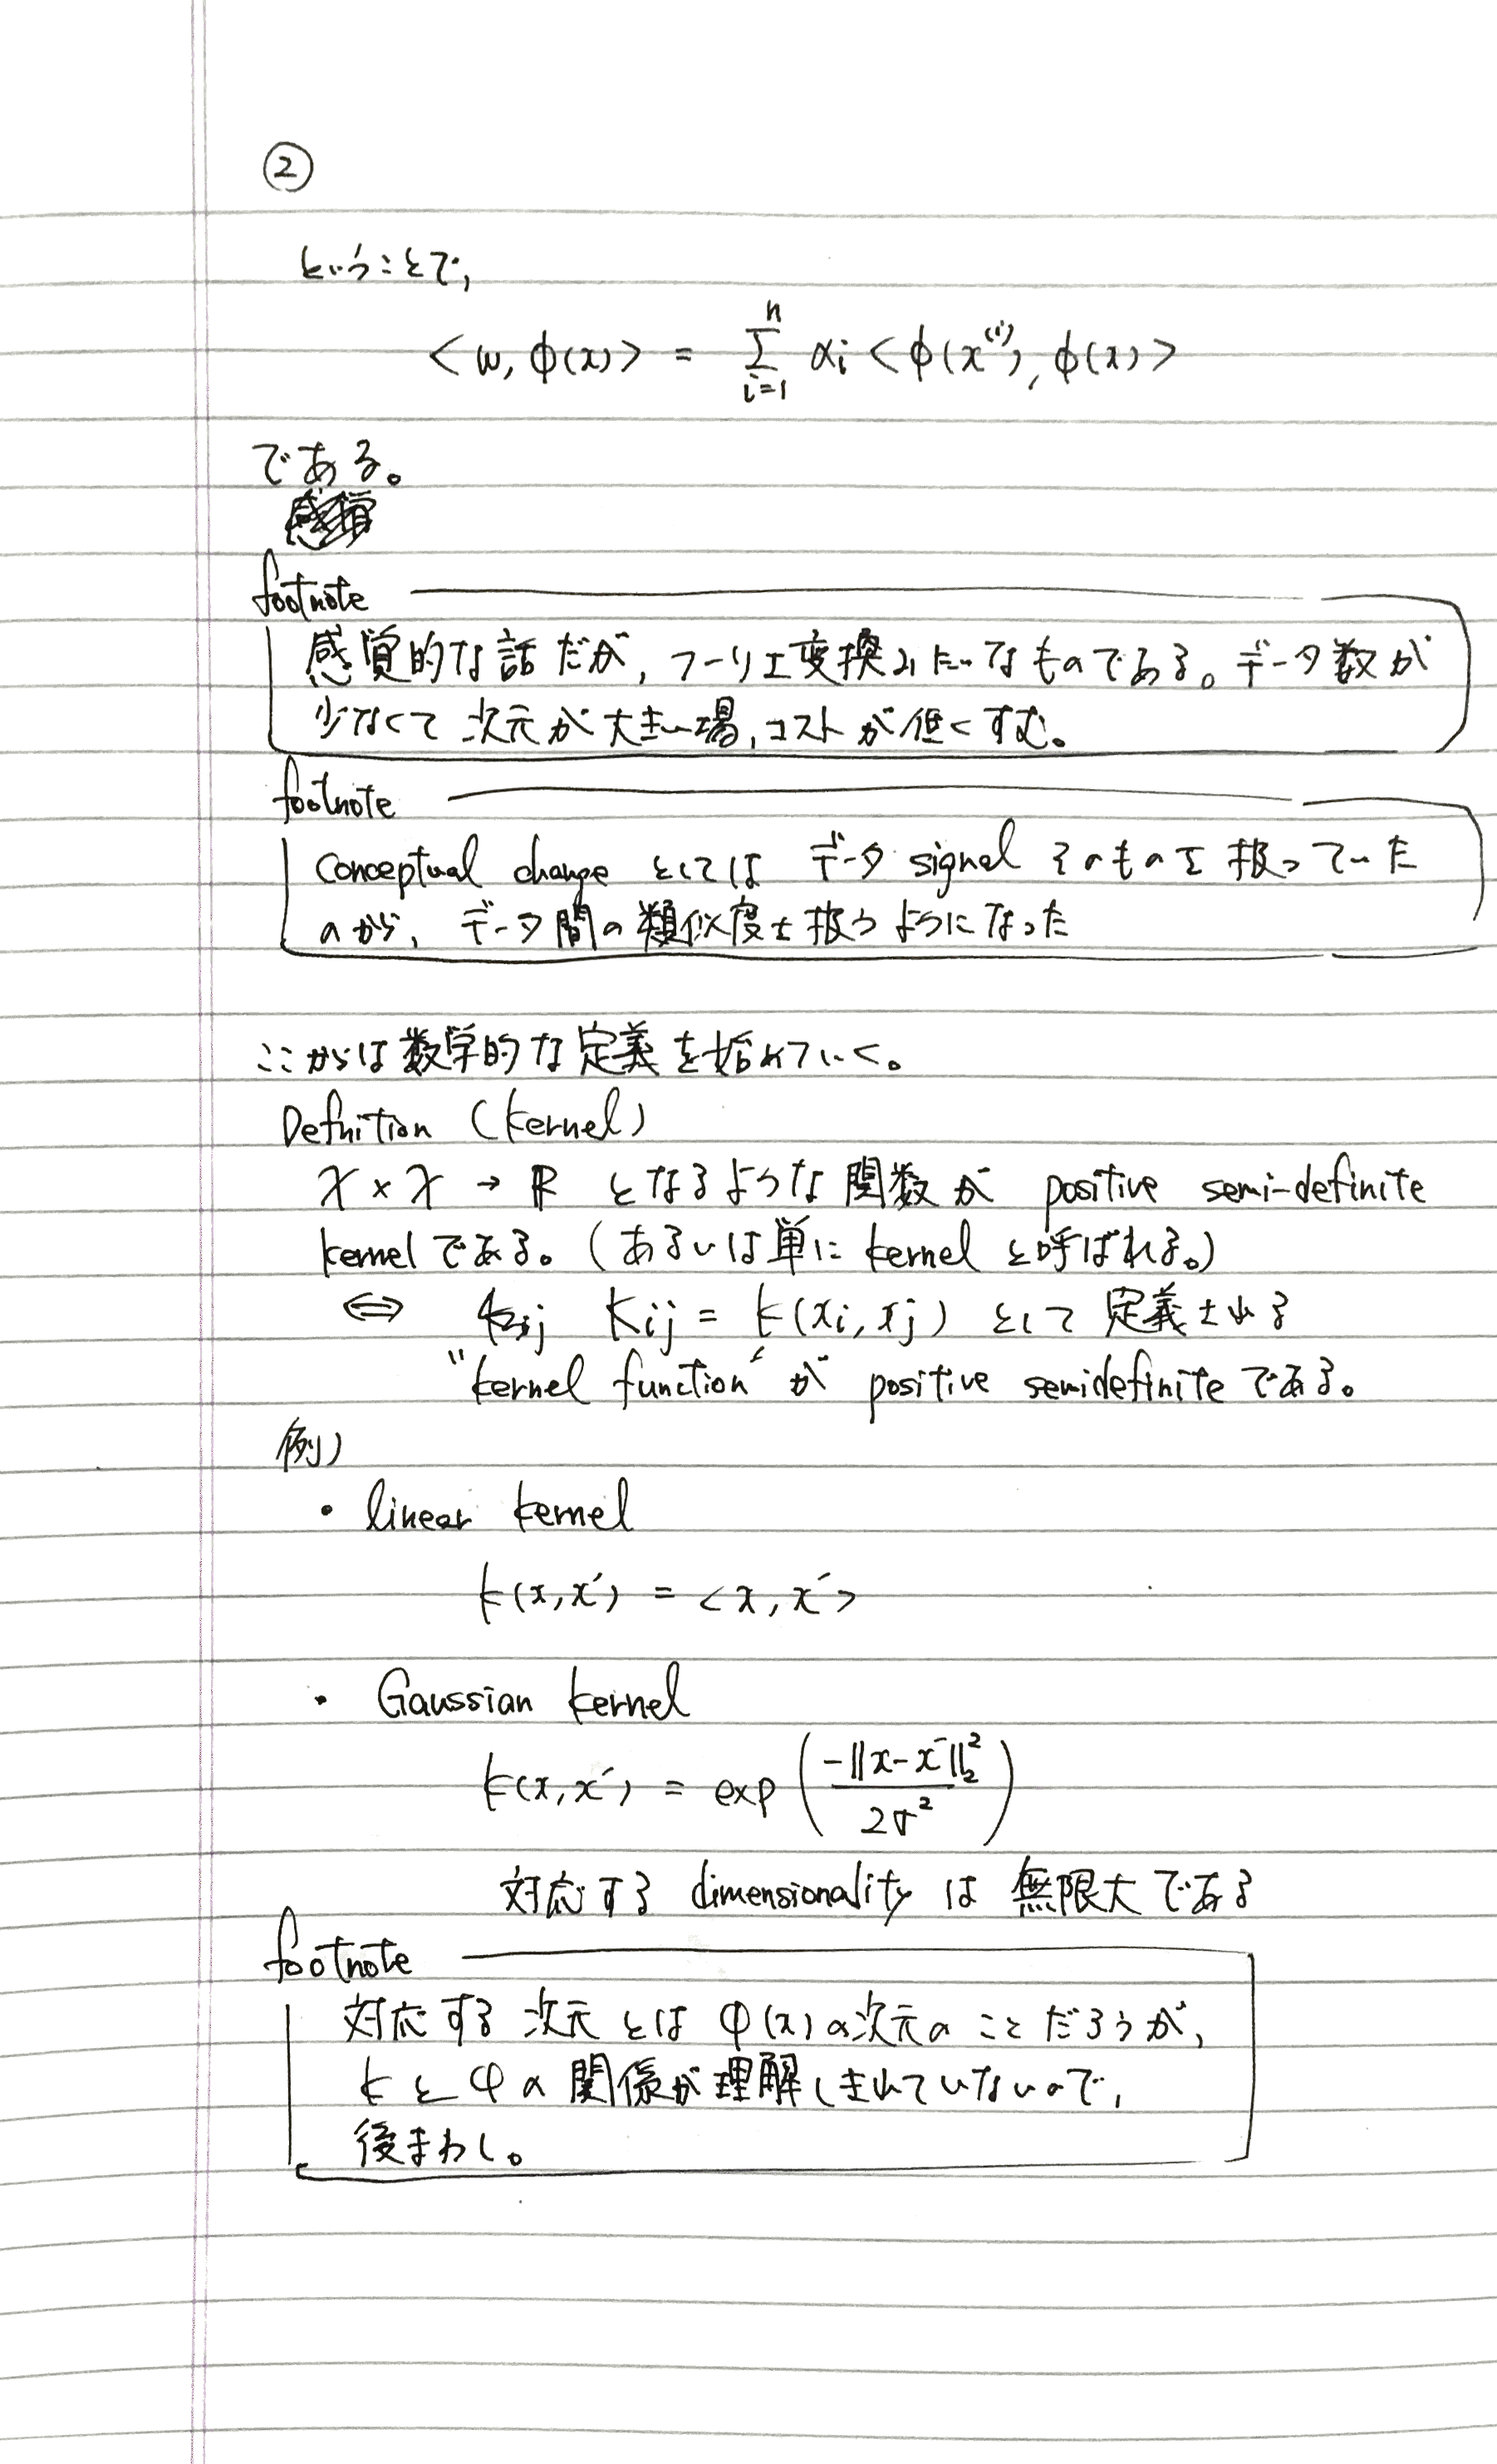 ②
ということで,
<w, φ(x)> = Σ_{i=1}^{n} αi <φ(x^{(i)}), φ(x)>
である。
footnote
感覚的な話だが, フーリエ変換みたいなものである。データ数が
少なくて次元が大きい場, コストが低くすむ。
footnote
conceptual change としては データ signal そのものを扱っていた
のから, データ間の類似度を扱うようになった
ここからは数学的な定義を始めていく。
Defnition (kernel)
X × X → ℝ となるような関数が positive semi-definite
kernelである。(あるいは単に kernel と呼ばれる。)
⇔ Kij = k(xi, xj) として定義される
"kernel function" が positive semidefinite である。
例)
・ linear kernel
k(x, x′) = <x, x′>
・ Gaussian kernel
k(x, x′) = exp(-||x-x′||₂² / 2σ²)
対応する dimensionality は無限大である
footnote
対応する次元とは φ(x)の次元のことだろうが,
kとφの関係が理解しきれていないので,
後まわし。